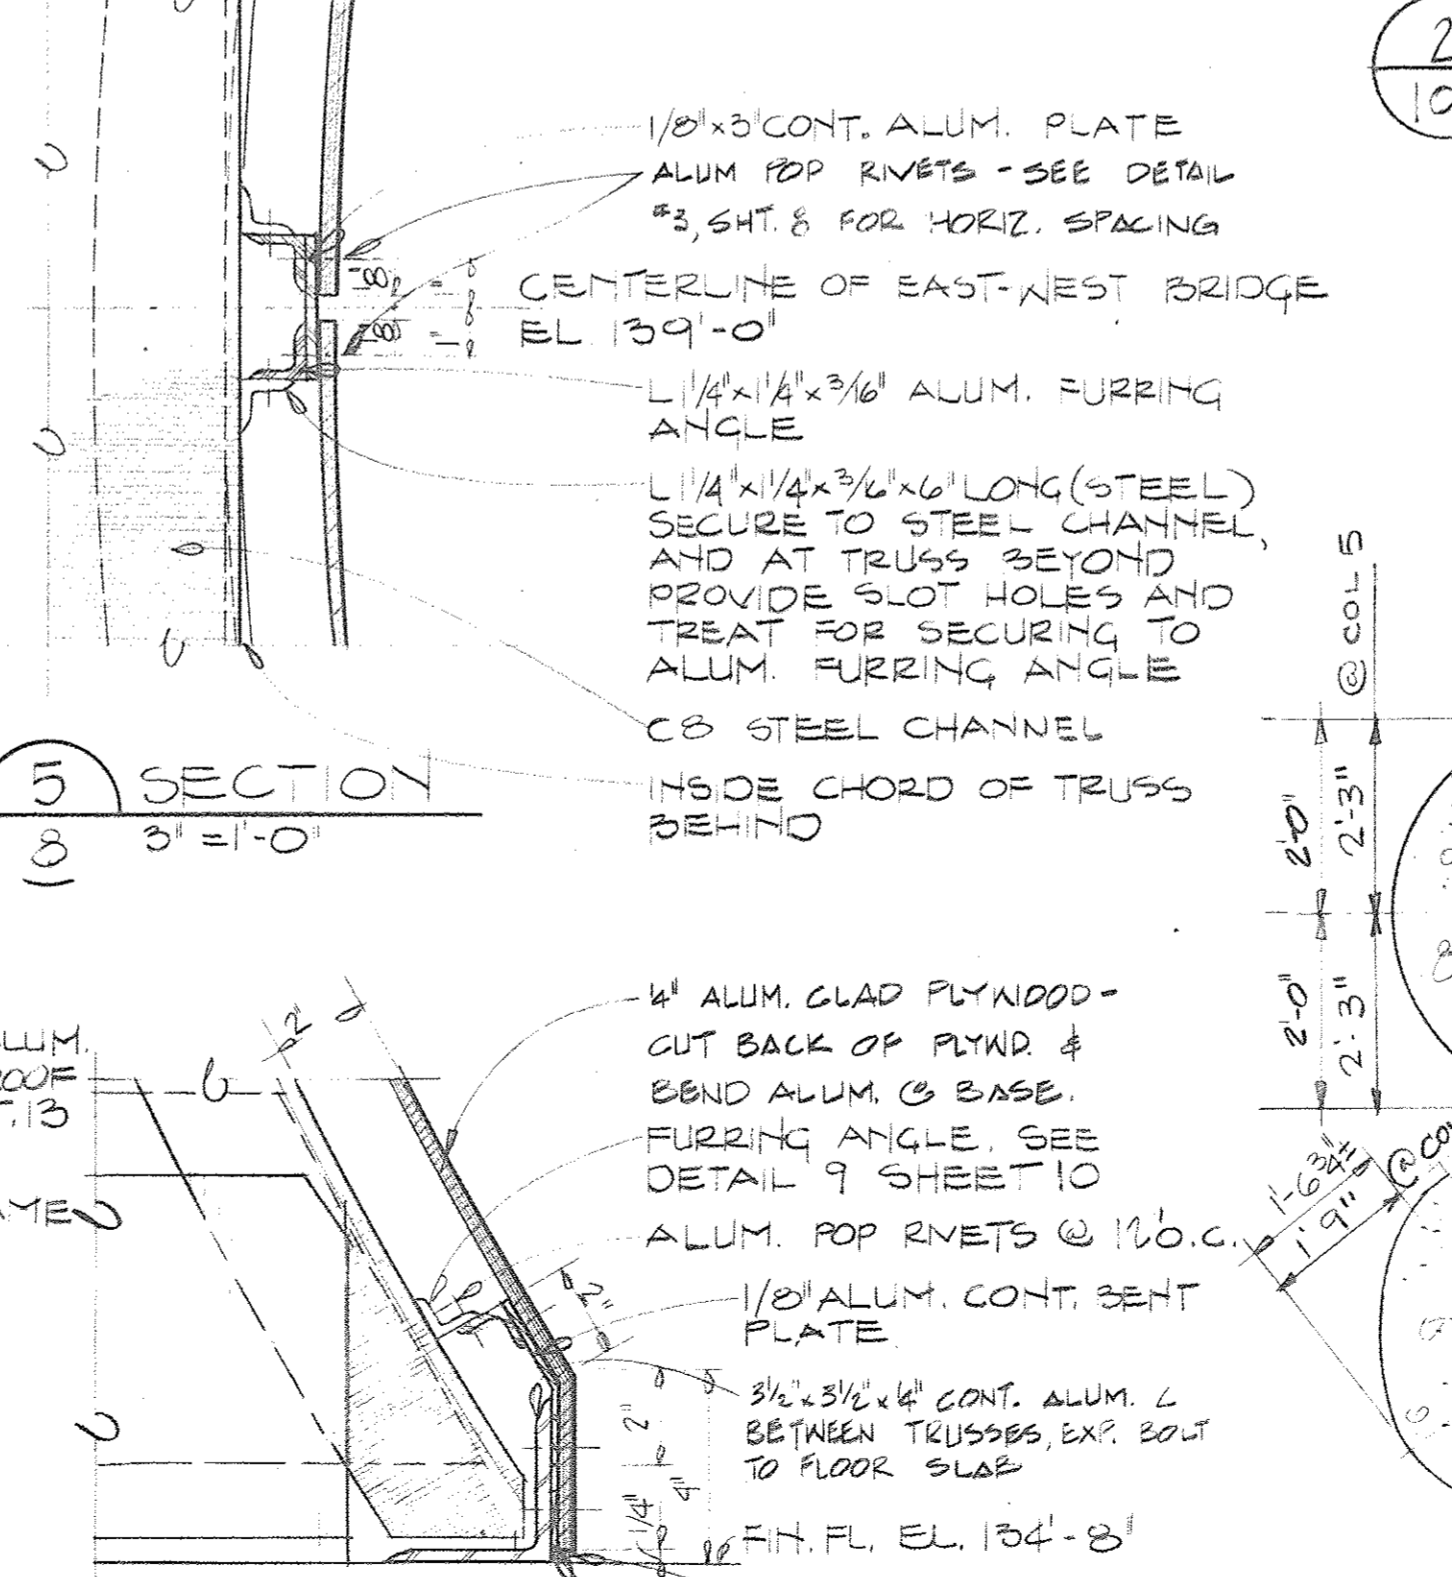 2
10
1/8"x3"CONT. ALUM. PLATE
ALUM POP RIVETS - SEE DETAIL
#3, SHT. 8 FOR HORIZ. SPACING
CENTERLINE OF EAST-WEST BRIDGE
EL. 139'-0"
L 1 1/4"x1 1/4"x3/16" ALUM. FURRING
ANGLE
L 1 1/4"x1 1/4"x3/16"x6" LONG (STEEL)
SECURE TO STEEL CHANNEL,
AND AT TRUSS BEYOND
PROVIDE SLOT HOLES AND
TREAT FOR SECURING TO
ALUM. FURRING ANGLE
C8 STEEL CHANNEL
INSIDE CHORD OF TRUSS
BEHIND
5 SECTION
8 3" = 1'-0"
@ COL 5
2'-0"
2'-3"
2'-0"
2'-3"
1'-6 3/4"±
1'9"
2"
LUM.
OOF
T.13
AME
1/4" ALUM. CLAD PLYWOOD -
CUT BACK OF PLYWD. &
BEND ALUM. @ BASE.
FURRING ANGLE. SEE
DETAIL 9 SHEET 10
ALUM. POP RIVETS @ 12"O.C.
2"
1/8" ALUM. CONT. BENT
PLATE
3 1/2"x3 1/2"x1/4" CONT. ALUM. L
BETWEEN TRUSSES, EXP. BOLT
TO FLOOR SLAB
2"
4"
1/4"
FIN. FL. EL. 134'-8"